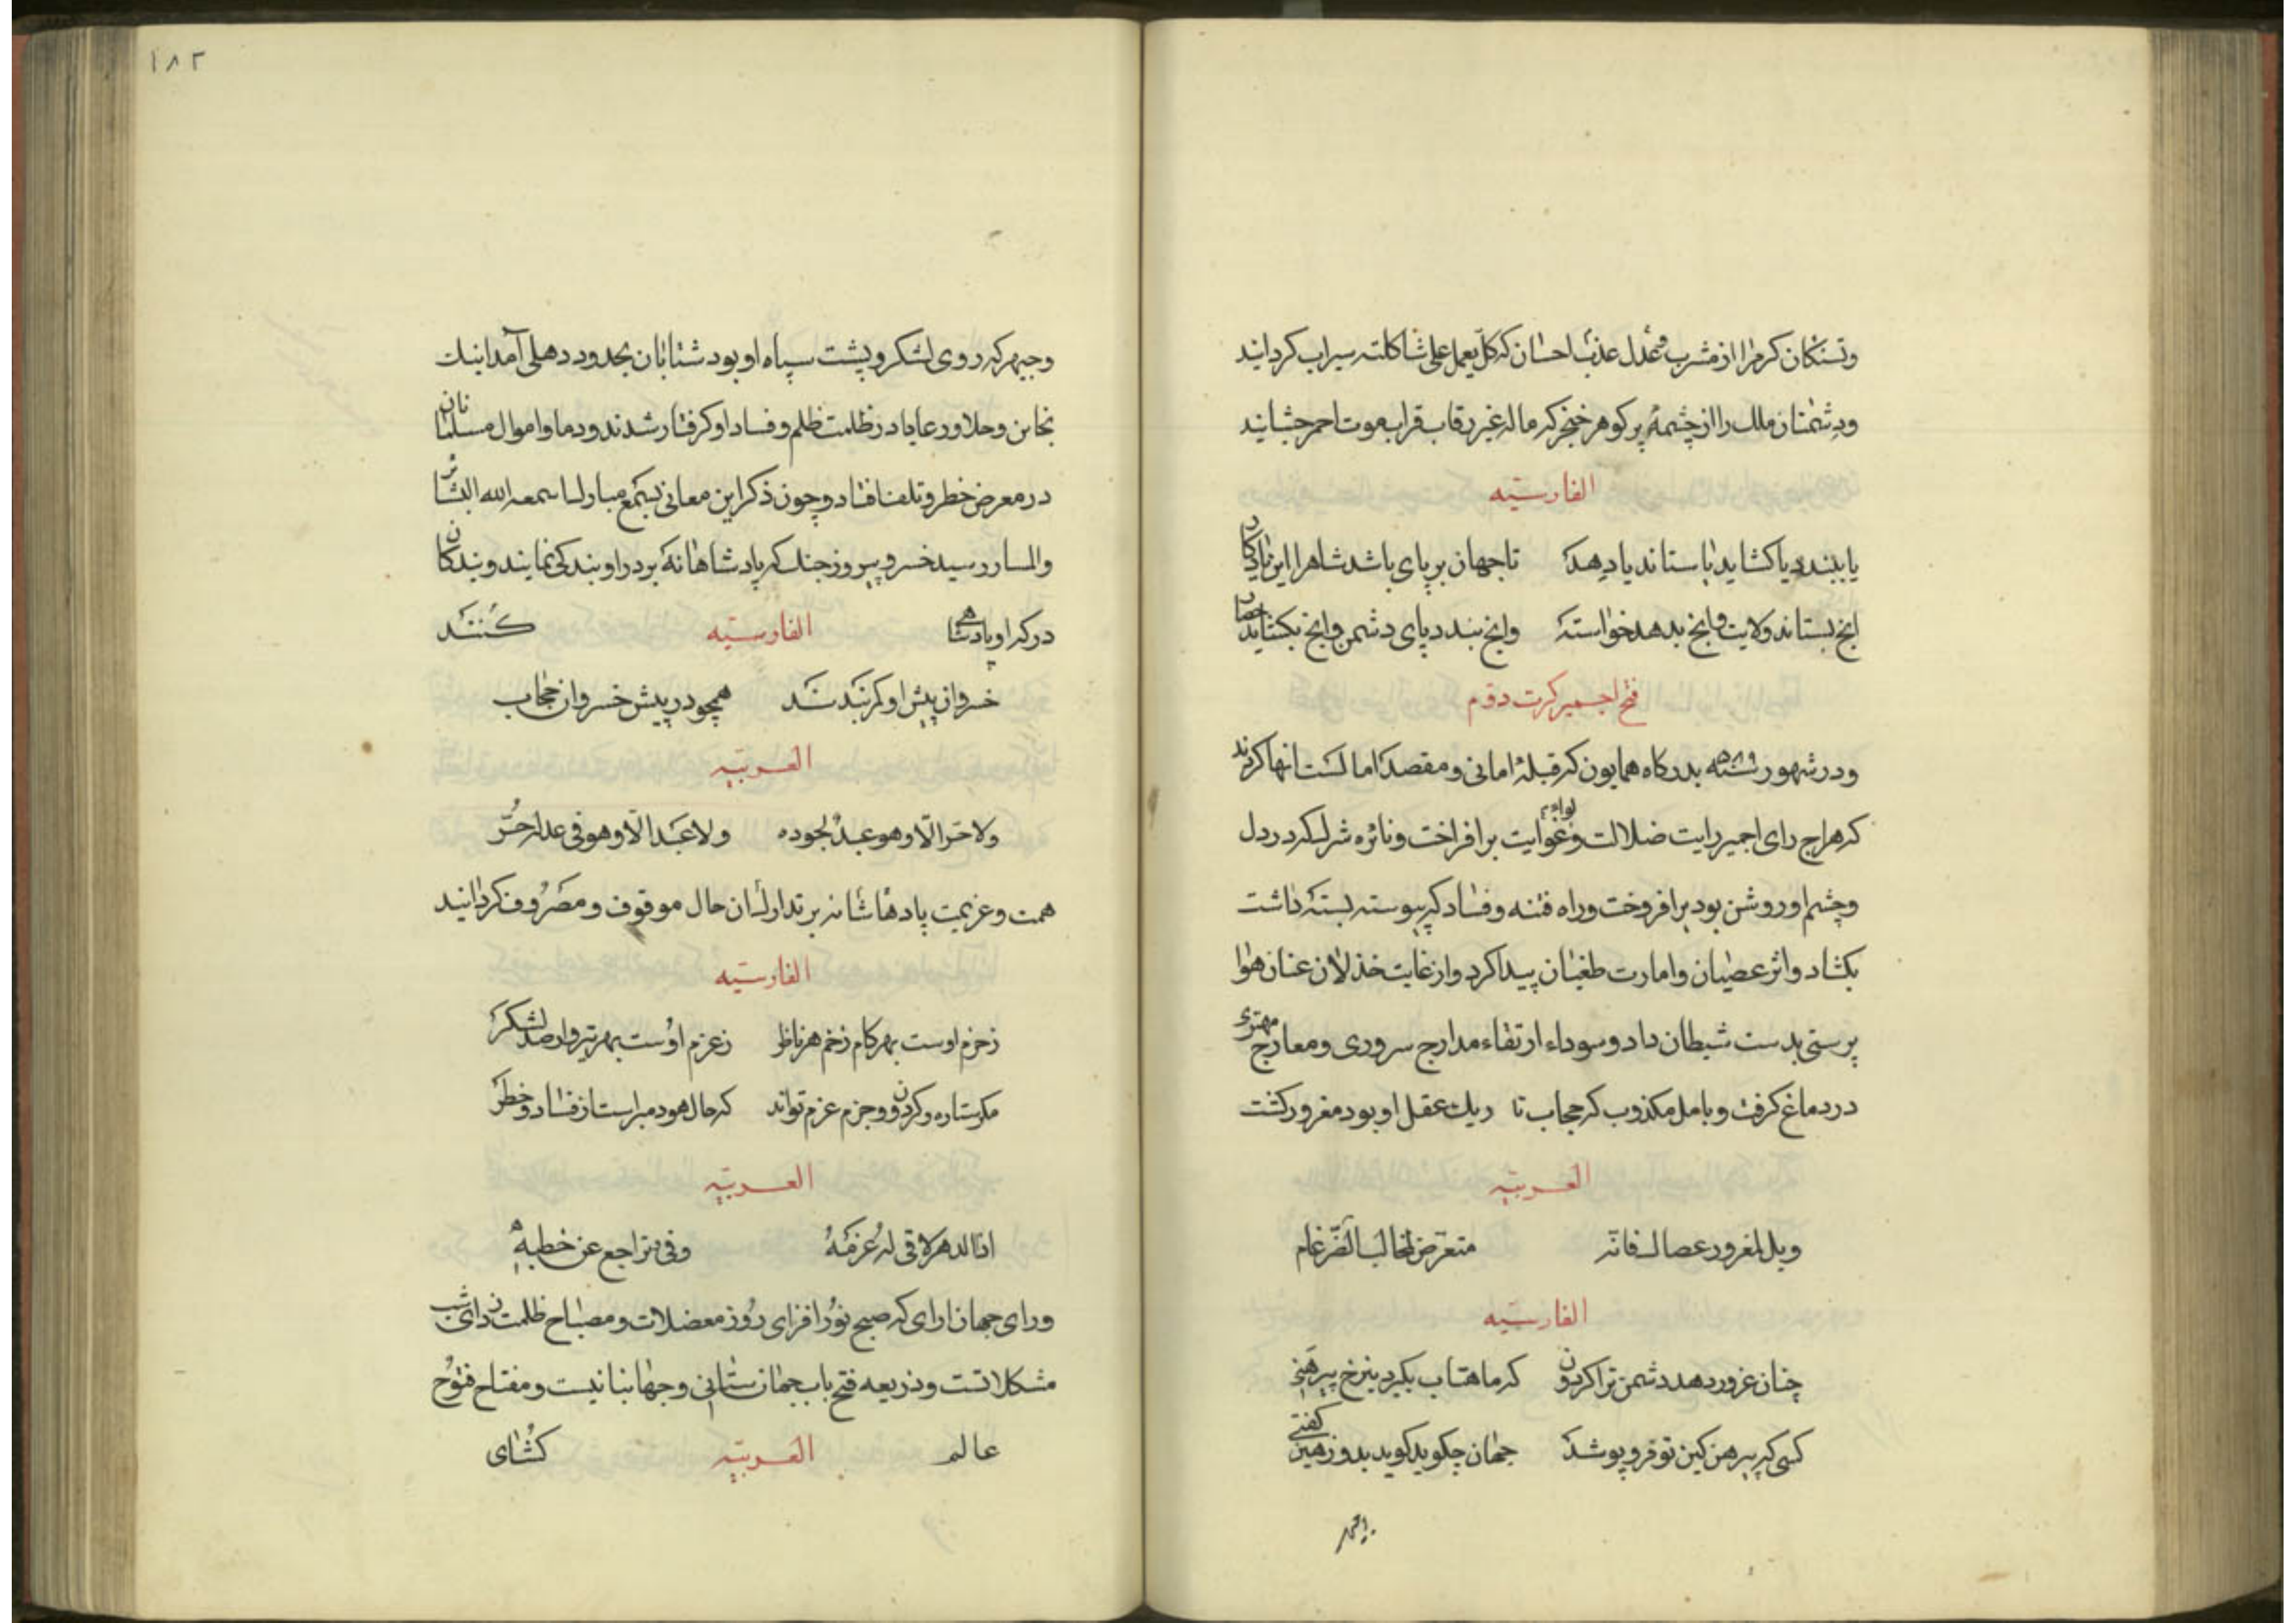 وتشنکان کرم را از مشرب عدل عذب احسان که کل یعمل علی شاکلته سیراب کردانید
ودشمنان ملک را از چشمهٔ پر کوهر خنجر که ماله غیر رقاب قراب موت احمر چشانید
الفارسیه
یا ببندد یا کشاید یا ستاند یا دهد تا جهان بر پای باشد شاه را این یادکار
انچ بستاند ولایت وانچ بدهد خواسته وانچ بندد پای دشمن وانچ بکشاید حصار
فتح اجمیر کرت دوم
ودر شهور سنه ۵۸۹ بدرکاه همایون که قبلهٔ امانی ومقصد اما لست انها کردند
که هراج رای اجمیر رایت ضلالت وغوایت بر افراخت ونائره شرک که در دل
وچشم او روشن بود بر افروخت وراه فتنه وفساد که پیوسته بسته داشت
بکشاد واثر عصیان وامارت طغیان پیدا کرد واز غایت خذلان عنان هوا
پرستی بدست شیطان داد وسوداء ارتقاء مدارج سروری ومعارج مهتری
در دماغ کرفت وبامل مکذوب که حجاب تا ریک عقل او بود مغرور کشت
العربیه
ویل لمغرور عصاک فانه متعرض لمخالب الضرغام
الفارسیه
چنان غرور دهد دشمن ترا کردون که ماهتاب بکیرد بنرخ پیرهنی
کسی که پیرهن کین تو فرو پوشد جهان چکوید کوید بدوز هین کفنی
وجیهر که روی لشکر وپشت سپاه او بود شتابان بحدود دهلی آمد اینک
بخاین وحلاور عایا در ظلمت ظلم وفساد او کرفتار شدند ودما واموال مسلمانان
در معرض خطر وتلف افتاد وچون ذکر این معانی بسمع مبارک اسمعه الله البشائر
والمسار رسید خسرو پیروز جنک که پادشاهانه بر در او بندکی نمایند وبندکان
درکه او پادشاهی الفارسیه کنند
خسروان پیش او کمر بندند همچو در پیش خسروان حجاب
العربیه
ولا حر الا وهو عبد لجوده ولا عبد الا وهو فی عدله حر
همت وعزیمت پادشاهانه بر تدارک ان حال موقوف ومصروف کردانید
الفارسیه
ز حزم اوست بهر کام زخم هر ناظر ز عزم اوست بهر تیر وار صد لشکر
مکر ستاره وکردون وحزم عزم تواند که حال هر دو مبراست از فساد وخطر
العربیه
اذا الدهر لاقی له عزمة وفی تراجع عن خطبه
ورای جهان ارای که صبح نور افزای روز معضلات ومصباح ظلمت زدای شب
مشکلاتست وذریعه فتح باب جهان ستانی وجهانبانیست ومفتاح فتوح
عالم العربیه کشای